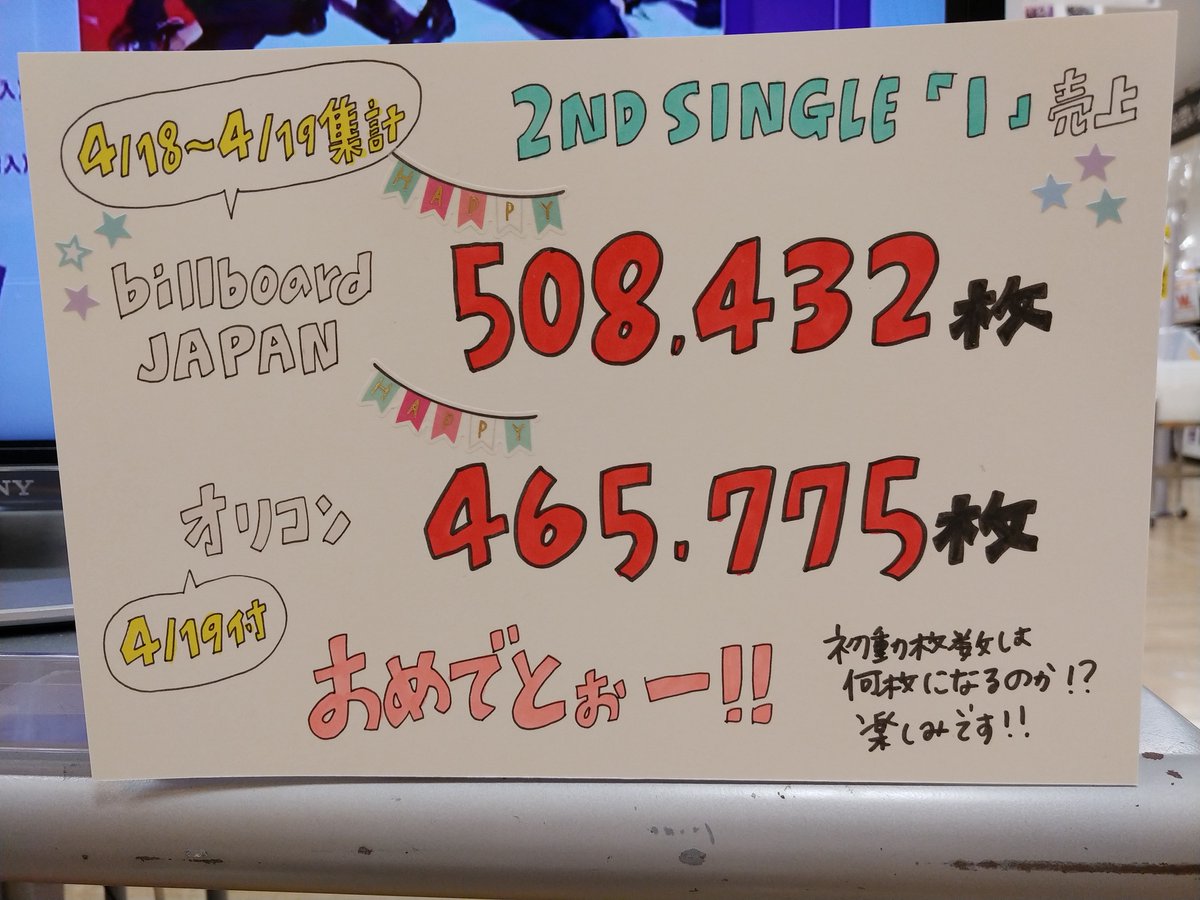 4/18〜4/19集計
2ND SINGLE「I」売上
HAPPY
billboard
JAPAN
508.432枚
HAPPY
オリコン
465.775枚
4/19付
おめでとぉー!!
初動枚数は
何枚になるのか!?
楽しみです!!